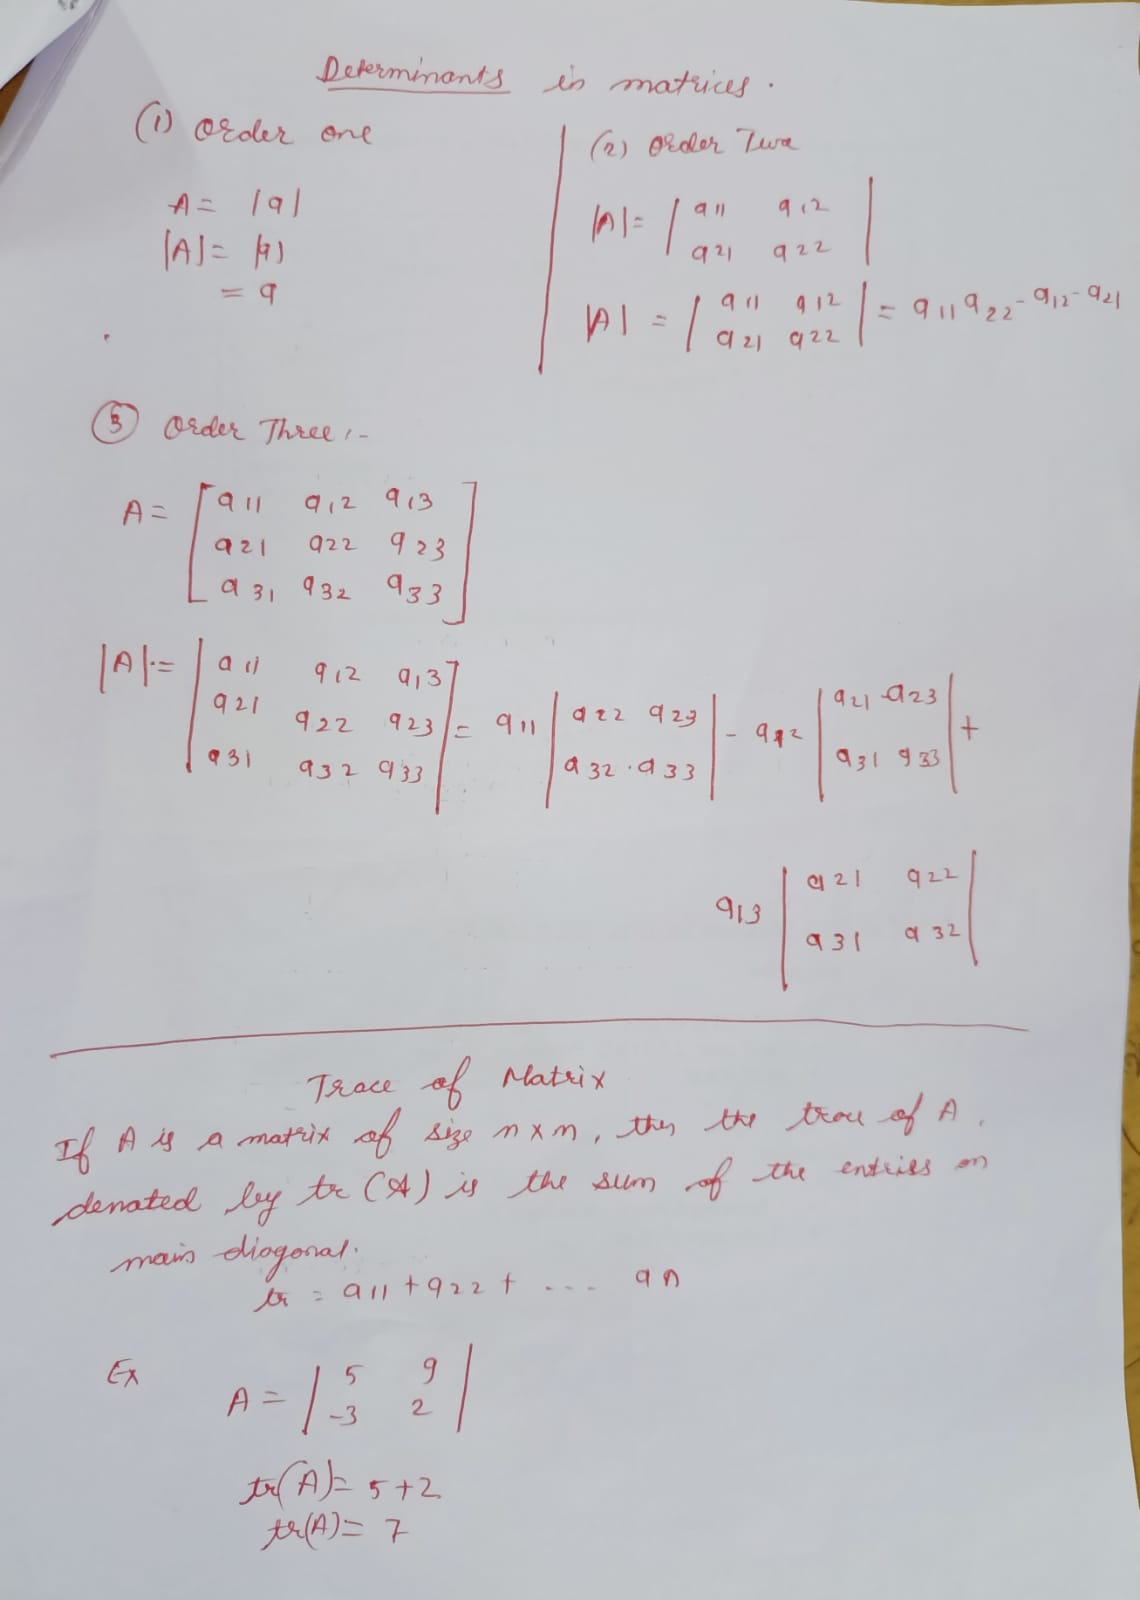 Determinants in matrices.
(1) Order one
A = |a|
|A| = |a|
= a
(2) Order Two
|A| = | a11 a12 |
| a21 a22 |
|A| = | a11 a12 | = a11 a22 - a12 - a21
| a21 a22 |
(3) Order Three :-
A = [ a11 a12 a13
a21 a22 a23
a31 a32 a33 ]
|A| = | a11 a12 a13 |
| a21 a22 a23 | = a11 | a22 a23 | - a12 | a21 a23 | +
| a31 a32 a33 | | a32 a33 | | a31 a33 |
a13 | a21 a22 |
| a31 a32 |
Trace of Matrix
If A is a matrix of size n x n, then the trace of A,
denated by tr (A) is the sum of the entries on
main diagonal.
tr = a11 + a22 + ... an
Ex
A = | 5 9 |
| -3 2 |
tr(A) = 5+2
tr(A) = 7